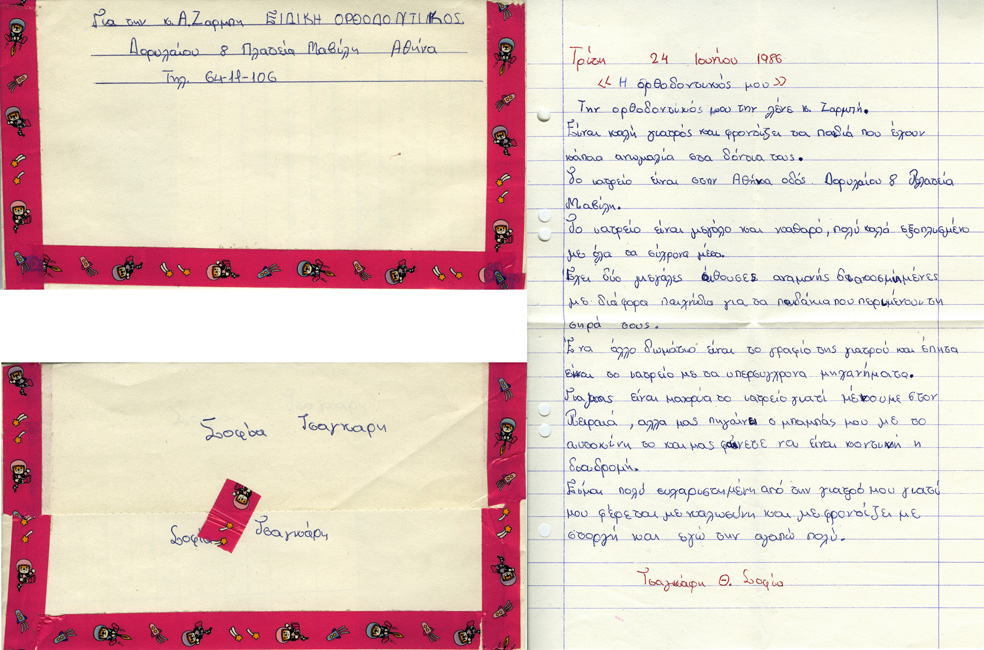 Για την κ. Α. Ζαρμπη ΕΙΔΙΚΗ ΟΡΘΟΔΟΝΤΙΚΟΣ
Δορυλαίου 8 Πλατεία Μαβίλη Αθήνα
Τηλ. 64-11-106
Σοφία Τσαγκαρη
Σοφία Τσαγκάρη
Τρίτη 24 Ιουνίου 1986
«Η ορθοδοντικός μου»
Την ορθοδοντικός μου την λένε κ. Ζαρμπή.
Είναι καλή γιατρός και φροντίζει τα παιδιά που έχουν
κάποια ανωμαλία στα δόντια τους.
Το ιατρείο είναι στην Αθήνα οδός Δορυλαίου 8 Πλατεία
Μαβίλη.
Το ιατρείο είναι μεγάλο και καθαρό, πολύ καλά εξοπλισμένο
με όλα τα σύχρονα μέσα.
Έχει δύο μεγάλες αίθουσες αναμονής
με διάφορα παιχνήδια για τα παιδάκια που περιμένουν τη
σηρά τους.
Ένα άλλο δωμάτιο είναι το γραφίο της γιατρού και έπητα
είναι το ιατρείο με τα υπερσυγχρονα μηχανήματα.
Για μας είναι μακρυά το ιατρείο γιατί μένουμε στον
Πειραιά, αλλα μας πηγαίνει ο μπαμπάς μου με το
αυτοκίνητο και μας φένετε να είναι κοντινή η
διαδρομή.
Είμαι πολύ ευχαριστημένη από την γιατρό μου γιατί
μου φέρεται με καλωσύνη και με φροντίζει με
στοργή και εγώ την αγαπώ πολύ.
Τσαγκάρη Θ. Σοφία